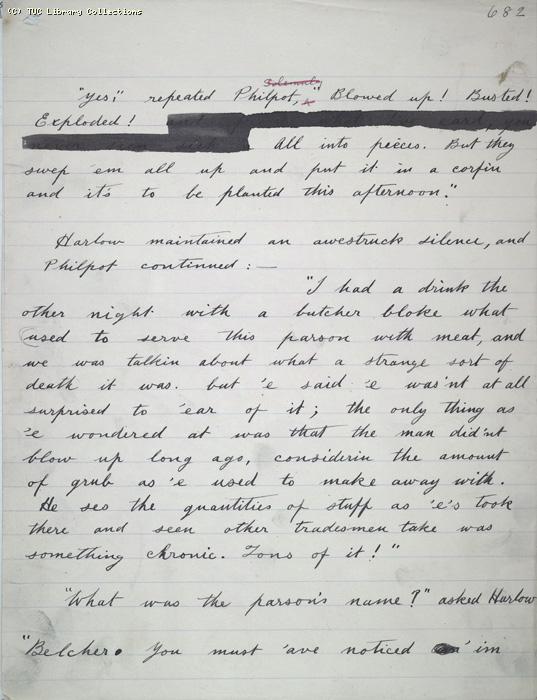 (C) TUC Library Collections
682
Solemnly
"Yes," repeated Philpot, "Blowed up! Busted!
Exploded!
All into pieces. But they
swep 'em all up and put it in a corfin
and it's to be planted this afternoon."
Harlow maintained an awestruck silence, and
Philpot continued:—
"I had a drink the
other night with a butcher bloke what
used to serve this parson with meat, and
we was talkin about what a strange sort of
death it was. but 'e said 'e was'nt at all
surprised to 'ear of it; the only thing as
'e wondered at was that the man did'nt
blow up long ago, considerin the amount
of grub as 'e used to make away with.
He ses the quantities of stuff as 'e's took
there and seen other tradesmen take was
something chronic. Tons of it!"
"What was the parson's name?" asked Harlow
"Belcher. You must 'ave noticed 'im